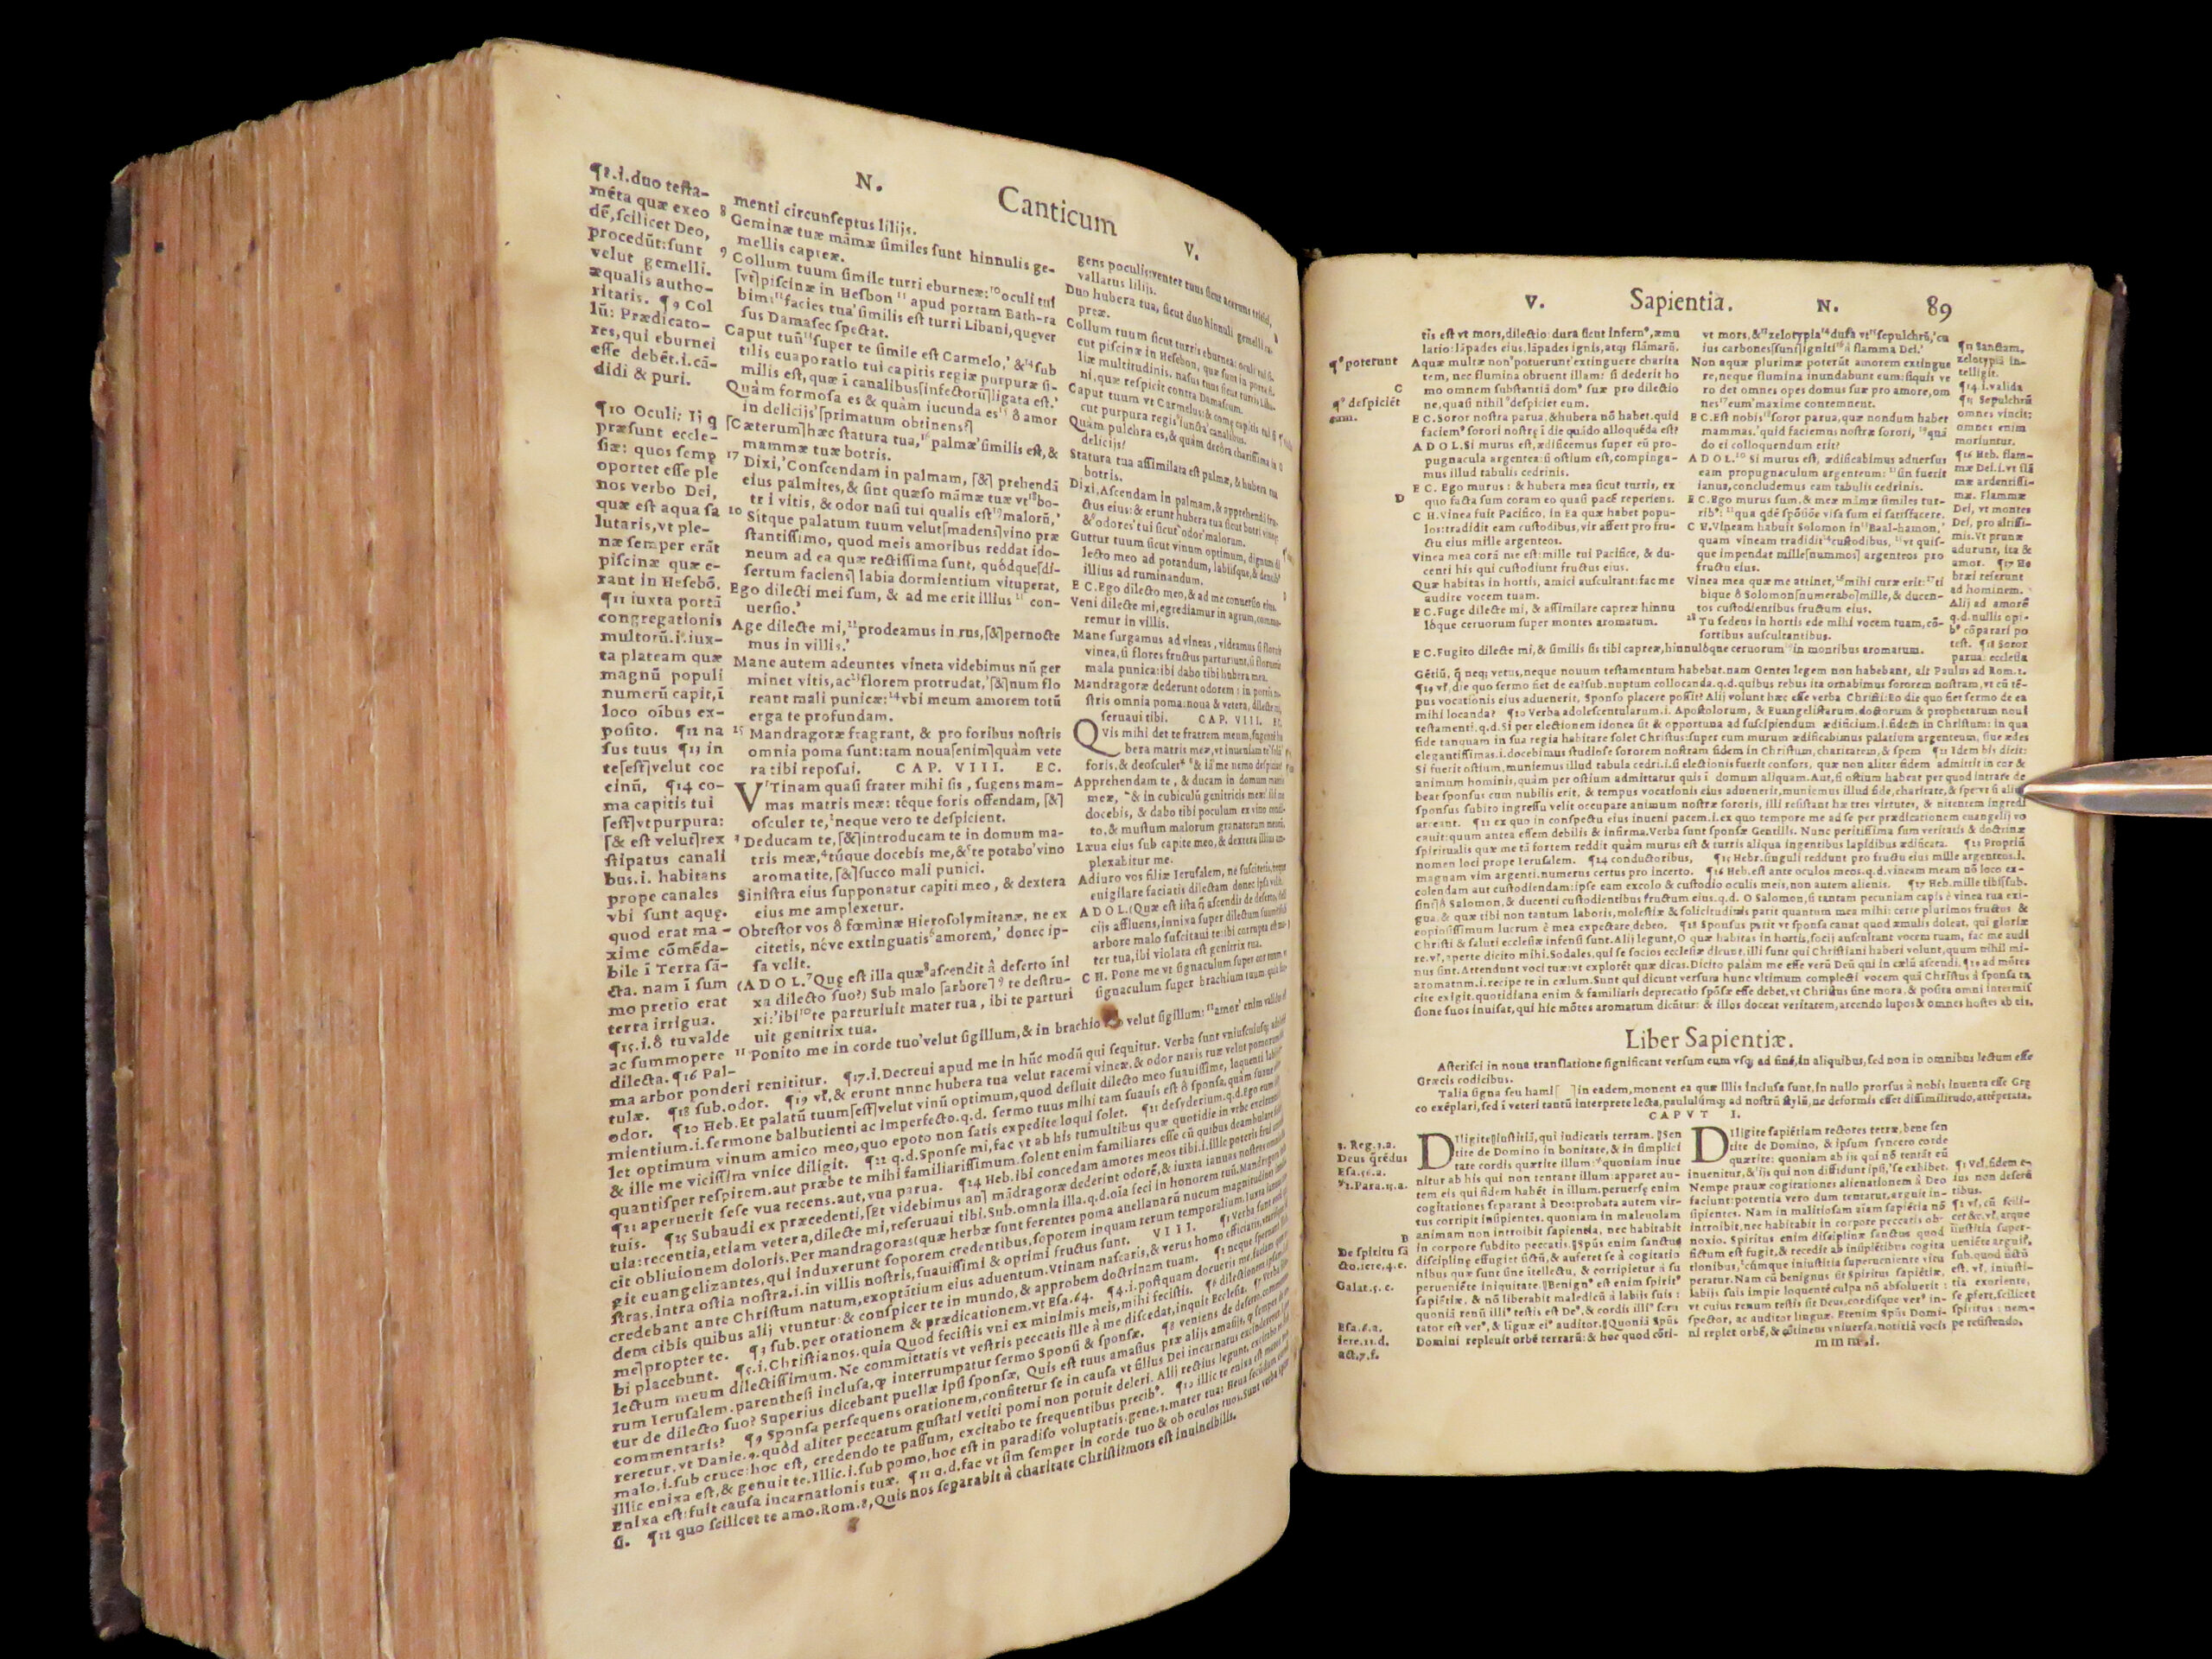 N. Canticum V.
¶8.i.duo testa-
mēta quæ exeo
dē, scilicet Deo,
procedūt: sunt
velut gemelli.
æqualis autho-
ritatis. ¶9 Col
lū: Prædicato-
res, qui eburnei
esse debēt.i.cā-
didi & puri.
¶10 Oculi: Ij q
præsunt eccle-
siæ: quos semp
oportet esse ple
nos verbo Dei,
quæ est aqua sa
lutaris, vt ple-
næ semper erāt
piscinæ quæ e-
rant in Hesebō.
¶11 iuxta portā
congregationis
multorū.i.iux-
ta plateam quæ
magnū populi
numerū capit, ī
loco oībus ex-
posito. ¶12 na
sus tuus ¶13 in
te[est]velut coc
cinū, ¶14 co-
ma capitis tui
[est]vt purpura:
[& est velut]rex
stipatus canali
bus.i. habitans
prope canales
vbi sunt aquę.
quod erat ma-
xime cōmēda-
bile ī Terra sā-
cta. nam ī sum
mo pretio erat
terra irrigua.
¶15.i.ô tu valde
ac summopere
dilecta. ¶16 Pal-
menti circunseptus lilijs.
8 Geminæ tuæ māmæ similes sunt hinnulis ge-
mellis capreæ.
9 Collum tuum simile turri eburneæ: 10 oculi tui
[vt]piscinæ in Hesbon 11 apud portam Bath-ra
bim: 12 facies tua' similis est turri Libani, quęver
sus Damasec spectat.
Caput tuū 13 super te simile est Carmelo,' & 14 sub
tilis euaporatio tui capitis regiæ purpuræ si-
milis est, quæ ī canalibus[infectorū]ligata est.'
Quàm formosa es & quàm iucunda es 15 ô amor
in delicijs'[primatum obtinens?]
[Cæterum]hæc statura tua, 16 palmæ' similis est, &
mammæ tuæ botris.
17 Dixi,' Conscendam in palmam, [&] prehendā
eius palmites, & sint quæso māmæ tuæ vt 18 bo-
tri vitis, & odor nasi tui qualis est 19 malorū,'
20 Sitque palatum tuum velut[madens]vino præ
stantissimo, quod meis amoribus reddat ido-
neum ad ea quæ rectissima sunt, quódque[di-
sertum faciens] labia dormientium vituperat,
Ego dilecti mei sum, & ad me erit illius 21 con-
uersio.'
Age dilecte mi, 22 prodeamus in rus,[&]pernocte
mus in villis.'
Mane autem adeuntes vineta videbimus nū ger
minet vitis, ac 23 florem protrudat,'[&]num flo
reant mali punicæ: 24 vbi meum amorem totū
erga te profundam.
25 Mandragoræ fragrant, & pro foribus nostris
omnia poma sunt: tam noua[enim]quàm vete
ra: tibi reposui. CAP. VIII. EC.
V 1 Tinam quasi frater mihi sis, sugens mam-
mas matris meæ: téque foris offendam, [&]
osculer te, 2 neque vero te despicient.
3 Deducam te,[&]introducam te in domum ma-
tris meæ, 4 túque docebis me, & 5 te potabo' vino
aromatite,[&]succo mali punici.
Sinistra eius supponatur capiti meo, & dextera
eius me amplexetur.
Obtestor vos ô fœminæ Hierosolymitanæ, ne ex
citetis, néve extinguatis 6 amorem,' donec ip-
sa velit.
(ADOL. 7 Quę est illa quæ 8 ascendit à deserto īni
xa dilecto suo?) Sub malo [arbore] 9 te destru-
xi:' ibi 10 te parturiuit mater tua, ibi te parturi
uit genitrix tua.
11 Ponito me in corde tuo' velut sigillum, & in brachio velut sigillum: 12 amor' enim
gens poculis: venter tuus sicut aceruus tritici,
vallatus lilijs.
Duo hubera tua, sicut duo hinnuli gemelli ca-
preæ.
Collum tuum sicut turris eburnea: oculi tui si-
cut piscinæ in Hesebon, quæ sunt in porta fi-
liæ multitudinis. nasus tuus sicut turris Liba-
ni, quæ respicit contra Damascum.
Caput tuum vt Carmelus: & comæ capitis tui si
cut purpura regis iuncta canalibus.
Quàm pulchra es, & quàm decôra charissima in
delicijs!
Statura tua assimilata est palmæ, & hubera tua
botris.
Dixi, Ascendam in palmam, & apprehendā fru-
ctus eius: & erunt hubera tua sicut botri vineę
& odores' tui sicut odor' malorum.
Guttur tuum sicut vinum optimum, dignum di
lecto meo ad potandum, labiisque, & dentib'
illius ad ruminandum.
EC. Ego dilecto meo, & ad me conuersio eius.
Veni dilecte mi, egrediamur in agrum, commo-
remur in villis.
Mane surgamus ad vineas, videamus si floruit
vinea, si flores fructus parturiunt, si floruerūt
mala punica: ibi dabo tibi hubera mea.
Mandragoræ dederunt odorem: in portis no-
stris omnia poma: noua & vetera, dilecte mi,
seruaui tibi. CAP. VIII. EC.
Q Vis mihi det te fratrem meum, sugentē hu
bera matris meæ, vt inueniam te solū
foris, & deosculer & iā me nemo despiciat
Apprehendam te, & ducam in domum matris
meæ, & in cubiculū genitricis meæ: ibi me
docebis, & dabo tibi poculum ex vino condi-
to, & mustum malorum granatorum meorū.
Læua eius sub capite meo, & dextera illius am-
plexabitur me.
Adiuro vos filiæ Ierusalem, ne suscitetis, neque
euigilare faciatis dilectam donec ipsa velit.
ADOL. (Quæ est ista q̄ ascendit de deserto, deli
cijs affluens, innixa super dilectum suum?)
arbore malo suscitaui te: ibi corrupta est ma-
ter tua, ibi violata est genitrix tua.
CH. Pone me vt signaculum super cor tuum, vt
signaculum super brachium tuum: quia for-
ma arbor ponderi renititur. ¶17.i. Decreui apud me in hūc modū qui sequitur. Verba sunt vniuscuiusq;
tulæ. ¶18 sub.odor. ¶19 vl, & erunt nunc hubera tua velut racemi vineæ, & odor naris tuæ velut pomorum
odor. ¶20 Heb. Et palatū tuum[est]velut vinū optimum, quod defluit dilecto meo suauissime, loquenti labijs
mientium.i.sermone balbutienti ac imperfecto.q.d. sermo tuus mihi tam suauis est ô sponsa, quàm
let optimum vinum amico meo, quo epoto non satis expedite loqui solet. ¶21 desyderium.q.d. Ego eum
& ille me vicissim vnice diligit. ¶22 q.d. Sponse mi, fac vt ab his tumultibus quæ quotidie in vrbe
quantisper respirem. aut præbe te mihi familiarissimum. solent enim familiares esse cū quibus deambulare
¶23 aperuerit sese vua recens. aut, vua parua. ¶24 Heb. ibi concedam amores meos tibi.i.ille poteris frui
tuis. ¶25 Subaudi ex præcedenti,[Et videbimus an] mādragoræ dederint odorē, & iuxta ianuas nostras
uia: recentia, etiam vetera, dilecte mi, reseruaui tibi. Sub. omnia illa.q.d. oīa feci in honorem tuū. Mandragoræ
cit obliuionem doloris. Per mandragoras(quæ herbæ sunt ferentes poma auellanarū nucum magnitudine)
git euangelizantes, qui induxerunt soporem credentibus, soporem inquam rerum temporalium. Iuxta ianuas
stras. intra ostia nostra.i. in villis nostris, suauissimi & optimi fructus sunt. VIII. ¶1 Verba sunt
credebant ante Christum natum, exoptātium eius aduentum. Vtinam nascaris, & verus homo efficiaris,
dem cibis quibus alij vtuntur: & conspicer te in mundo, & approbem doctrinam tuam. ¶2 neque
me]propter te. ¶3 sub. per orationem & prædicationem. vt Esa.64. ¶4.i. postquam docueris me, faciam
bi placebunt. ¶5.i. Christianos. quia Quod fecistis vni ex minimis meis, mihi fecistis. ¶6 dilectionem
lectum meum dilectissimum. Ne committatis vt vestris peccatis ille à me discedat, inquit Ecclesia. ¶7 Verba
rum Ierusalem. parenthesi inclusa, q interrumpatur sermo Sponsi & sponsæ. ¶8 veniens de deserto,
tur de dilecto suo? Superius dicebant puellæ ipsi sponsæ, Quis est tuus amasius præ alijs amasijs, q
commentaris? ¶9 Sponsa persequens orationem, confitetur se in causa vt filius Dei incarnatus
reretur. vt Danie.9. quòd aliter peccatum gustati vetiti pomi non potuit deleri. Alij rectius legunt, excitabo
malo.i.sub cruce: hoc est, credendo te passum, excitabo te frequentibus precib'. ¶10 illic te enixa est mater
illic enixa est, & genuit te. Illic.i. sub pomo, hoc est in paradiso voluptatis. gene.3. mater tua: Heua
Enixa est: fuit causa incarnationis tuæ. ¶11 q.d. fac vt sim semper in corde tuo & ob oculos tuos. Sunt verba
si. ¶12 quo scilicet te amo. Rom.8, Quis nos separabit à charitate Christi: mors est inuincibilis.
V. Sapientia. N. 89
¶ poterunt
C
¶ despiciēt
eum.
D
tis est vt mors, dilectio: dura sicut Infern', æmu
latio: lāpades eius, lāpades ignis, atq; flāmarū.
Aquæ multæ non potuerunt' extinguere charita
tem, nec flumina obruent illam: si dederit ho
mo omnem substantiā dom' suæ pro dilectio
ne, quasi nihil despiciet eum.
EC. Soror nostra parua, & hubera nō habet. quid
faciem' sorori nostrę ī die quādo alloquēda est?
ADOL. Si murus est, ædificemus super eū pro-
pugnacula argentea: si ostium est, compinga-
mus illud tabulis cedrinis.
EC. Ego murus: & hubera mea sicut turris, ex
quo facta sum coram eo quasi pacē reperiens.
CH. Vinea fuit Pacifico, in ea quæ habet popu-
los: tradidit eam custodibus, vir affert pro fru-
ctu eius mille argenteos.
Vinea mea corā me est: mille tui Pacifice, & du-
centi his qui custodiunt fructus eius.
Quæ habitas in hortis, amici auscultant: fac me
audire vocem tuam.
EC. Fuge dilecte mi, & assimilare capreæ hinnu
lóque ceruorum super montes aromatum.
vt mors, & 13 zelotypia 14 dura vt 15 sepulchrū,' cu
ius carbones[sunt]igniti 16 à flamma Dei.'
Non aquæ plurimæ poterūt amorem extingue
re, neque flumina inundabunt eum: siquis ve
ro det omnes opes domus suæ pro amore, om
nes 17 eum' maxime contemnent.
EC. Est nobis 18 soror parua, quæ nondum habet
mammas.' quid faciemus nostræ sorori, 19 quā
do ei colloquendum erit?
ADOL. 20 Si murus est, ædificabimus aduersus
eam propugnaculum argenteum: 21 sin fuerit
ianus, concludemus eam tabulis cedrinis.
EC. Ego murus sum, & meæ māmæ similes tur-
rib': 22 qua qdē spōsiōe visa sum ei satisfacere.
CH. Vineam habuit Solomon in 23 Baal-hamon,'
quam vineam tradidit 24 custodibus, 25 vt quis-
que impendat mille[nummos] argenteos pro
fructu eius.
Vinea mea quæ me attinet, 26 mihi curæ erit: 27 ti
bique ô Solomon[numerabo]mille, & ducen-
tos custodientibus fructum eius.
28 Tu sedens in hortis ede mihi vocem tuam, cō-
sortibus auscultantibus.
EC. Fugito dilecte mi, & similis sis tibi capreæ, hinnulóque ceruorum in montibus aromatum.
¶13 Sanctam,
zelotypiā in-
telligit.
¶14 i. valida
¶15 Sepulchrū
omnes vincit:
omnes enim
moriuntur.
¶16 Heb. flam-
mæ Dei.i. vt flā
mæ ardentissi-
mæ. Flammæ
Dei, vt montes
Dei, pro altissi-
mis. Vt prunæ
adurunt, ita &
amor. ¶17 He
bræi referunt
ad hominem.
Alij ad amorē
q.d. nullis opi-
b' cōparari po
test. ¶18 Soror
parua: ecclesia
Gētiū, q̄ neq; vetus, neque nouum testamentum habebat. nam Gentes legem non habebant, ait Paulus ad Rom.2.
¶19 vl, die quo sermo fiet de ea? sub. nuptum collocanda. q.d. quibus rebus ita ornabimus sororem nostram, vt cū tē-
pus vocationis eius aduenerit, Sponso placere possit? Alij volunt hæc esse verba Christi: Eo die quo fiet sermo de ea
mihi locanda? ¶20 Verba adolescentularum.i. Apostolorum, & Euangelistarum, doctorum & prophetarum noui
testamenti. q.d. Si per electionem idonea sit & opportuna ad suscipiendum ædificium.i. fidem in Christum: in qua
fide tanquam in sua regia habitare solet Christus: super eum murum ædificabimus palatium argenteum, siue ædes
elegantissimas.i. docebimus studiose sororem nostram fidem in Christum, charitatem, & spem ¶21 Idem bis dicit:
Si fuerit ostium, muniemus illud tabula cedri.i. si electionis fuerit consors, quæ non aliter fidem admittit in cor &
animum hominis, quàm per ostium admittatur quis ī domum aliquam. Aut, si ostium habeat per quod intrare de
beat sponsus cum nubilis erit, & tempus vocationis eius aduenerit, muniemus illud fide, charitate, & spe: vt si aliu
sponsus subito ingressu velit occupare animum nostræ sororis, illi resistant hæ tres virtutes, & nitentem ingredi
arceant. ¶22 ex quo in conspectu eius inueni pacem.i. ex quo tempore me ad se per prædicationem euangelij vo
cauit: quum antea essem debilis & infirma. Verba sunt sponsæ Gentilis. Nunc peritissima sum veritatis & doctrinæ
spiritualis quæ me tā fortem reddit quàm murus est & turris aliqua ingentibus lapidibus ædificata. ¶23 Propriū
nomen loci prope Ierusalem. ¶24 conductoribus, ¶25 Hebr. singuli reddunt pro fructu eius mille argenteos.i.
magnam vim argenti. numerus certus pro incerto. ¶26 Heb. est ante oculos meos. q.d. vineam meam nō loco ex-
colendam aut custodiendam: ipse eam excolo & custodio oculis meis, non autem alienis. ¶27 Heb. mille tibi[sub.
sint]ô Salomon, & ducenti custodientibus fructum eius. q.d. O Salomon, si tantam pecuniam capis è vinea tua exi-
gua, & quæ tibi non tantum laboris, molestiæ & solicitudinis parit quantum mea mihi: certe plurimos fructus &
copiosissimum lucrum è mea expectare debeo. ¶28 Sponsus petit vt sponsa canat quod æmulis doleat, qui gloriæ
Christi & saluti ecclesiæ infensi sunt. Alij legunt, O quæ habitas in hortis, socij auscultant vocem tuam, fac me audi
re. vl, aperte dicito mihi. Sodales, qui se socios ecclesiæ dicunt. illi sunt qui Christiani haberi volunt, quum nihil mi-
nus sint. Attendunt voci tuæ: vt explorēt quæ dicas. Dicito palàm me esse verū Deū qui in cælū ascendi. ¶29 ad mōtes
aromatum.i. recipe te in cælum. Sunt qui dicunt versum hunc vltimum complecti vocem quā Christus à sponsa ta
cite exigit. quotidiana enim & familiaris deprecatio spōsæ esse debet, vt Christus sine mora, & posita omni intermis
sione suos inuisat, qui hic mōtes aromatum dicūtur: & illos doceat veritatem, arcendo lupos & omnes hostes ab eis.
Liber Sapientiæ.
Asterisci in noua translatione significant versum eum vsq; ad finē, in aliquibus, sed non in omnibus lectum esse
Græcis codicibus.
Talia signa seu hami[ ]in eadem, monent ea quæ illis inclusa sunt, in nullo prorsus à nobis inuenta esse Gre
co exēplari, sed ī veteri tantū interprete lecta, paululūmq; ad nostrū stylū, ne deformis esset dissimilitudo, attēperata.
CAPVT I.
3. Reg.3.a.
Deus qrēdus
Esa.56.a.
2. Para.15.a.
B
De spiritu sā
cto. iere.4.c.
Galat.5.c.
Esa.6.a.
iere.11.d.
act.7.f.
D Iligite iustitiā, qui iudicatis terram. Sen
tite de Domino in bonitate, & in simplici
tate cordis quærite illum: quoniam inue
nitur ab his qui non tentant illum: apparet au-
tem eis qui fidem habēt in illum. peruersę enim
cogitationes separant à Deo: probata autem vir-
tus corripit insipientes. quoniam in maleuolam
animam non introibit sapientia, nec habitabit
in corpore subdito peccatis. Spūs enim sanctus
disciplinę effugiet fictū, & auferet se à cogitatio
nibus quæ sunt sine ītellectu, & corripietur à su
perueniēte iniquitate. Benign' est enim spirit'
sapiētiæ, & nō liberabit maledicū à labijs suis:
quoniā renū illi' testis est De', & cordis illi' scru
tator est ver', & linguæ ei' auditor. Quoniā Spūs
Domini repleuit orbē terrarū: & hoc quod cōti-
D Iligite sapiētiam rectores terræ, bene sen
tite de Domino, & ipsum syncero corde
quærite: quoniam ab ijs qui nō tentāt eū
inuenitur, & ijs qui non diffidunt ipsi, se exhibet.
Nempe prauæ cogitationes alienationem à Deo
faciunt: potentia vero dum tentatur, arguit in-
sipientes. Nam in malitiosam aīam sapiētia nō
introibit, nec habitabit in corpore peccatis ob-
noxio. Spiritus enim disciplinæ sanctus quod
fictum est fugit, & recedit ab insipiētibus cogita
tionibus, cúmque iniustitia superueniente vitu
peratur. Nam cū benignus sit Spiritus sapiētiæ,
labijs suis impie loquentē culpa nō absoluerit:
vt cuius renum testis sit Deus, cordisque ver' in-
spector, ac auditor linguæ. Etenim Spūs Domi-
ni replet orbē, & cōtinens vniuersa, notitiā vocis
¶1 Vel, fidem e-
ius non deserū
tibus.
¶2 vl, cū scili-
cet &c. vl, arque
iniustitia super-
ueniēte arguit.
sub. quod fictū
est. vl, iniusti-
tia exoriente,
se pfert, scilicet
spiritus: nem-
pe resistendo.
mmm.i.